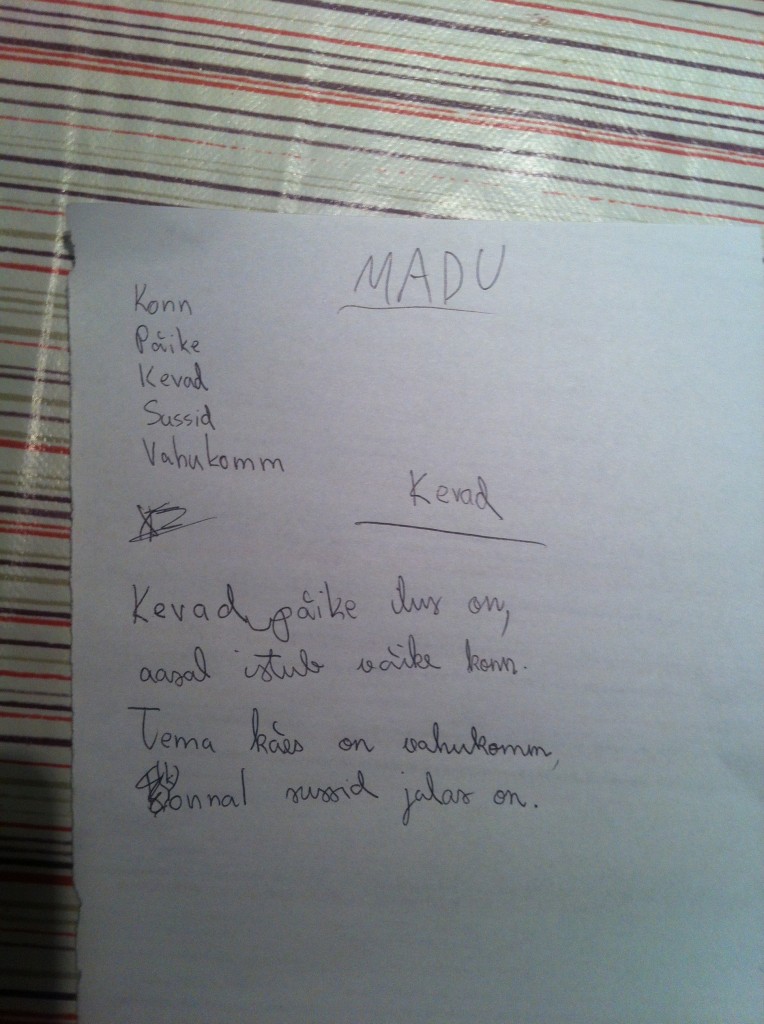 MADU
Konn
Päike
Kevad
Sussid
Vahukomm
Kevad
Kevad päike ilus on,
aasal istub väike konn.
Tema käes on vahukomm,
konnal sussid jalas on.